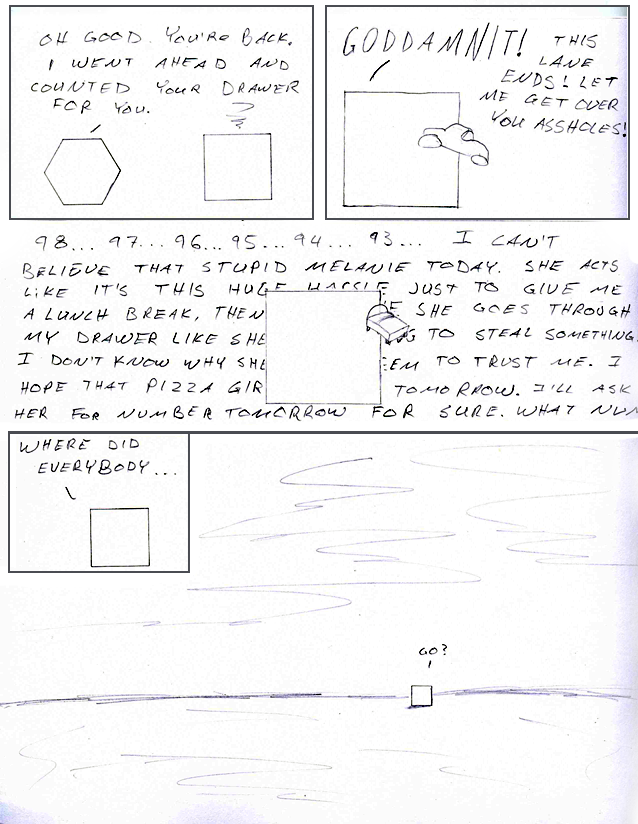 OH GOOD. YOU'RE BACK.
I WENT AHEAD AND
COUNTED YOUR DRAWER
FOR YOU.
GODDAMNIT! THIS
LANE
ENDS! LET
ME GET OVER
YOU ASSHOLES!
98... 97... 96... 95... 94... 93... I CAN'T
BELIEVE THAT STUPID MELANIE TODAY. SHE ACTS
LIKE IT'S THIS HUGE HASSLE JUST TO GIVE ME
A LUNCH BREAK, THEN SHE GOES THROUGH
MY DRAWER LIKE SHE TO STEAL SOMETHING.
I DON'T KNOW WHY SHE TO TRUST ME. I
HOPE THAT PIZZA TOMORROW. I'LL ASK
HER FOR NUMBER TOMORROW FOR SURE. WHAT
WHERE DID
EVERYBODY...
GO?